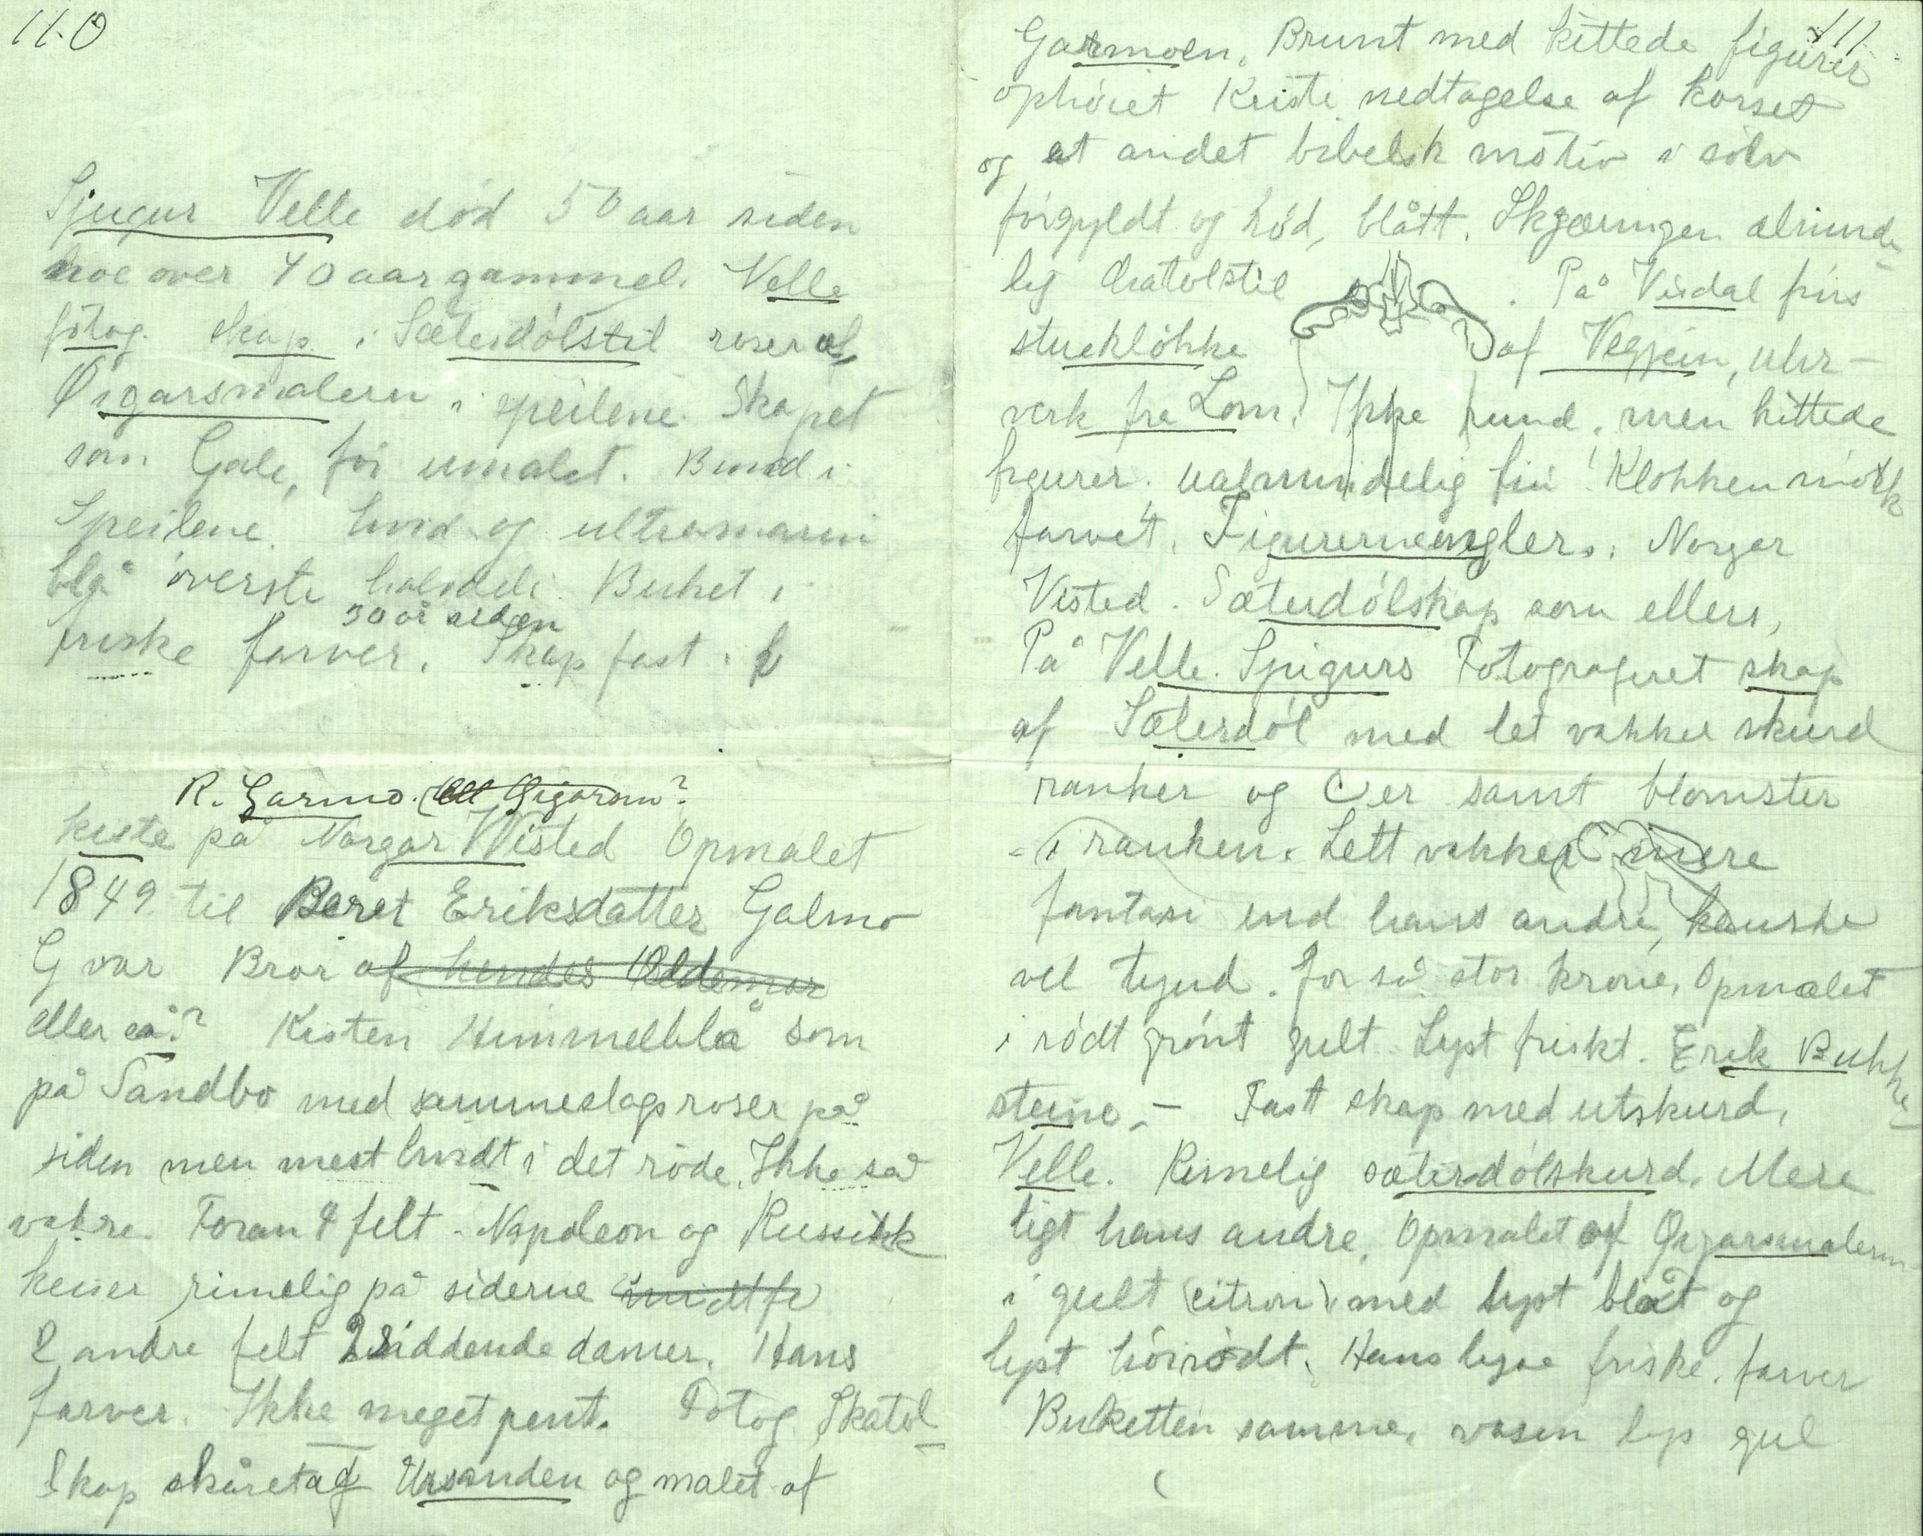 110
Sjugur Velle død 50 aar siden
noe over 40 aar gammel. Velle
fotog. skap i Sæterdølstil roser af
Øigarsmaleren i speilene. Skapet
som Gale, før umalet. Bund i
Speilene. hvid og ultramarin
blå øverste halvdel. Buket i
50 år siden
friske farver. Skap fast.
R. Garmo. (Ell Øigarsm?
kiste på Norgar Visted Opmalet
1849 til Beret Eriksdatter Galmo
G var Bror af hendes Oldemor
eller så? Kisten Himmelblå som
på Sandbo med sammeslags roser på
siden men mest hvidt i det røde. Ikke så
vakre. Foran 4 felt - Napoleon og Russisk
keiser rimelig på siderne i midtfe
2 andre felt 2 siddende damer. Hans
farver. Ikke meget pent. Fotog. Skatol
Skap skåret af Ursanden og malet af
111
Garmoen. Brunt med kittede figurer
ophøiet Kristi nedtagelse af korset
og et andet bibelsk motiv i sølv
forgyldt og rød, blått. Skjæringen alminde
lig chatolstil . På Visdal fins
stueklokke af Vegjein, uhr-
verk fra Lom. Ikke rund, men kittede
figurer. ualmindelig fin! Klokken mørk
farvet. Figurernemgler. Norger
Visted. Sæterdølskap som ellers,
På Velle. Sjugurs Fotograferet skap
af Sæterdøl med let vakker skurd
ranker og C er samt blomster
- i ranken. Lett vakker mere
fantasi end hans andre, kanske
vel tynd. for så stor krone. Opmalet
i rødt grønt gult. Lyst friskt. Erik Bukke
steine. - Fast skap med utskurd,
Velle. Rimelig sæterdølskurd. Mere
ligt hans andre. Opmalet af Øigarsmaleren
i gult (citron) med lyst blåt og
lyst høirødt. Hans lyse friske farver
Buketten samme. vasen lys gul